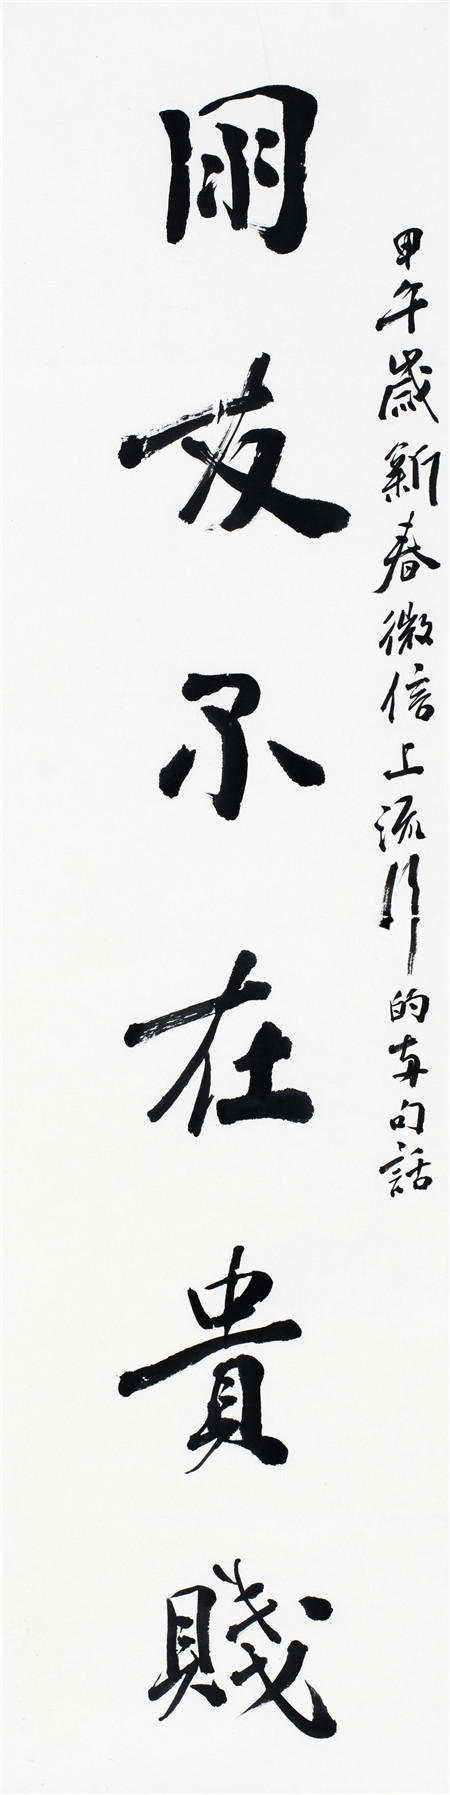 甲午歲新春微信上流行的两句話
朋友不在貴賤